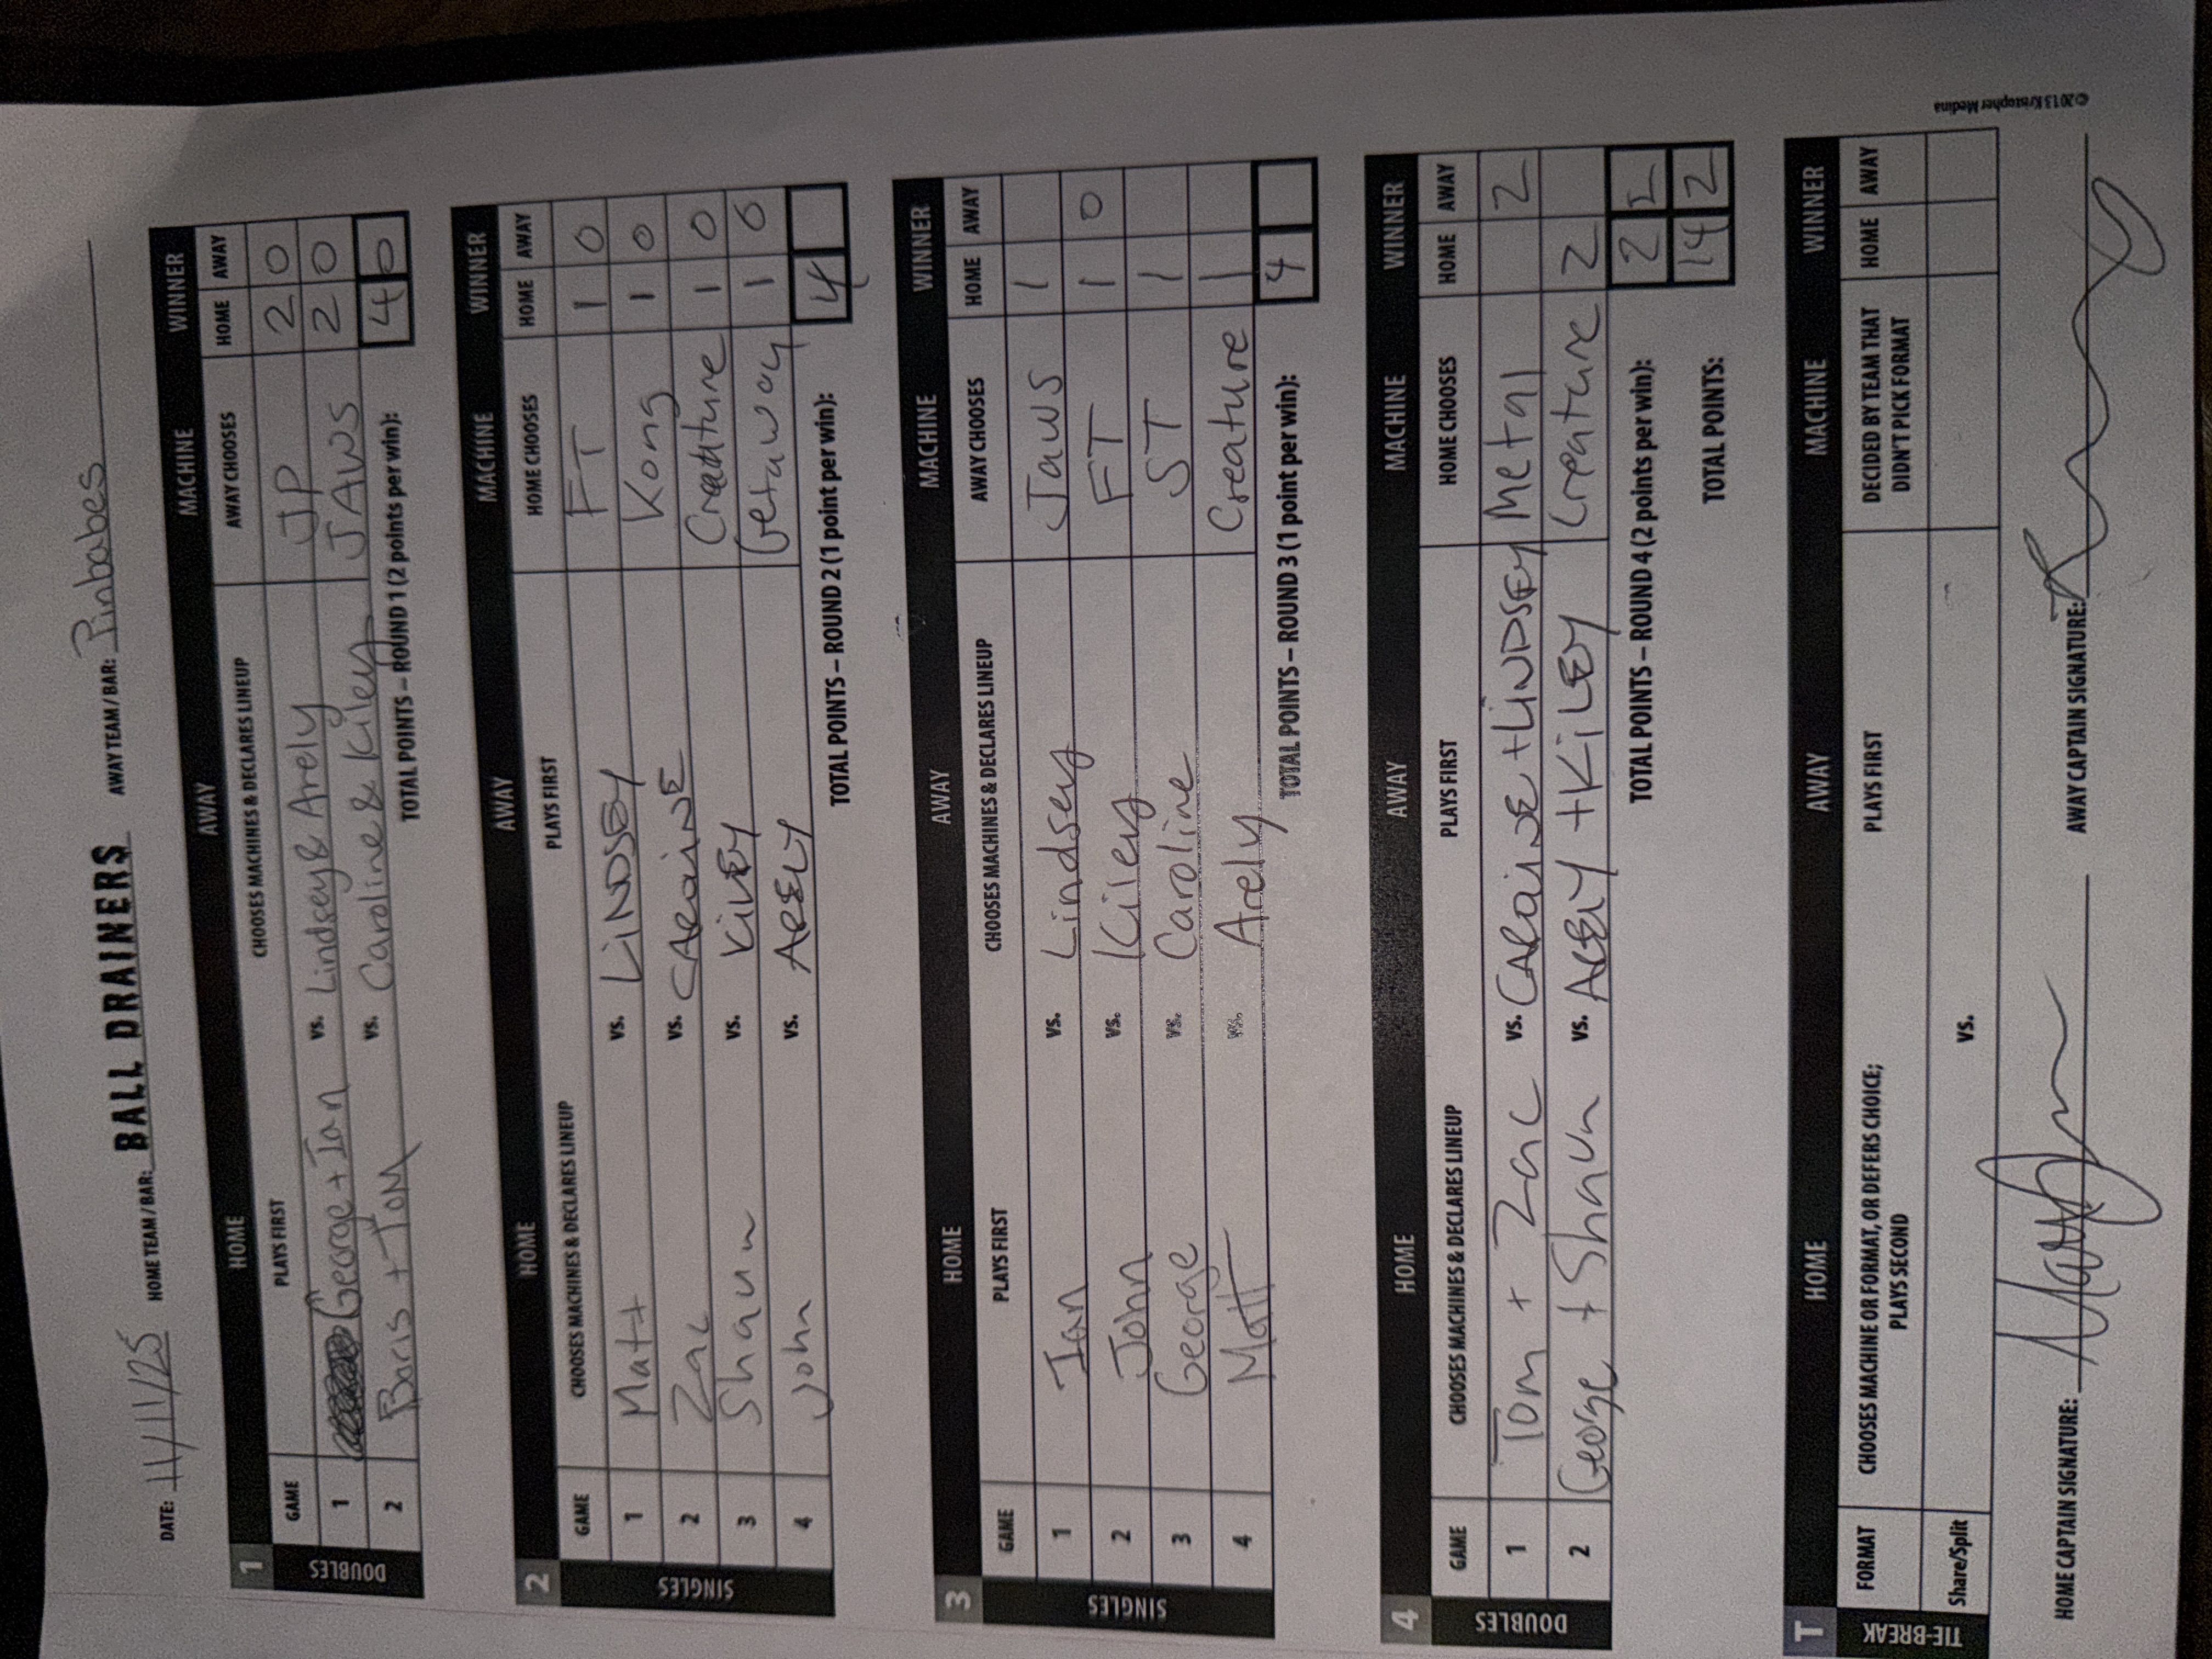 DATE: 11/11/25 HOME TEAM / BAR: BALL DRAINERS AWAY TEAM / BAR: Pinbabes
1 HOME AWAY MACHINE WINNER
GAME PLAYS FIRST CHOOSES MACHINES & DECLARES LINEUP AWAY CHOOSES HOME AWAY
DOUBLES
1 George + Ian vs. Lindsey & Arely JP 2 0
2 Boris + Tom vs. Caroline & Kiley JAWS 2 0
TOTAL POINTS – ROUND 1 (2 points per win): 4 0
2 HOME AWAY MACHINE WINNER
GAME CHOOSES MACHINES & DECLARES LINEUP PLAYS FIRST HOME CHOOSES HOME AWAY
SINGLES
1 Matt vs. LiNDSEY FT 1 0
2 Zac vs. CAROLINE Kong 1 0
3 Shaun vs. KiLEY Creature 1 0
4 John vs. ARELY Getaway 1 0
TOTAL POINTS – ROUND 2 (1 point per win): 4
3 HOME AWAY MACHINE WINNER
GAME PLAYS FIRST CHOOSES MACHINES & DECLARES LINEUP AWAY CHOOSES HOME AWAY
SINGLES
1 Ian vs. Lindsey Jaws 1
2 John vs. Kiley FT 1 0
3 George vs. Caroline ST 1
4 Matt vs. Arely Creature 1
TOTAL POINTS – ROUND 3 (1 point per win): 4
4 HOME AWAY MACHINE WINNER
GAME CHOOSES MACHINES & DECLARES LINEUP PLAYS FIRST HOME CHOOSES HOME AWAY
DOUBLES
1 Tom + Zac vs. CAROLINE + LiNDSEY Metal 2
2 George + Shaun vs. ARELY + KiLEY Creature 2
TOTAL POINTS – ROUND 4 (2 points per win): 2 2
TOTAL POINTS: 14 2
T HOME AWAY MACHINE WINNER
TIE-BREAK
FORMAT CHOOSES MACHINE OR FORMAT, OR DEFERS CHOICE; PLAYS SECOND PLAYS FIRST DECIDED BY TEAM THAT DIDN'T PICK FORMAT HOME AWAY
Share/Split vs.
HOME CAPTAIN SIGNATURE: AWAY CAPTAIN SIGNATURE:
©2013 Kristopher Medina